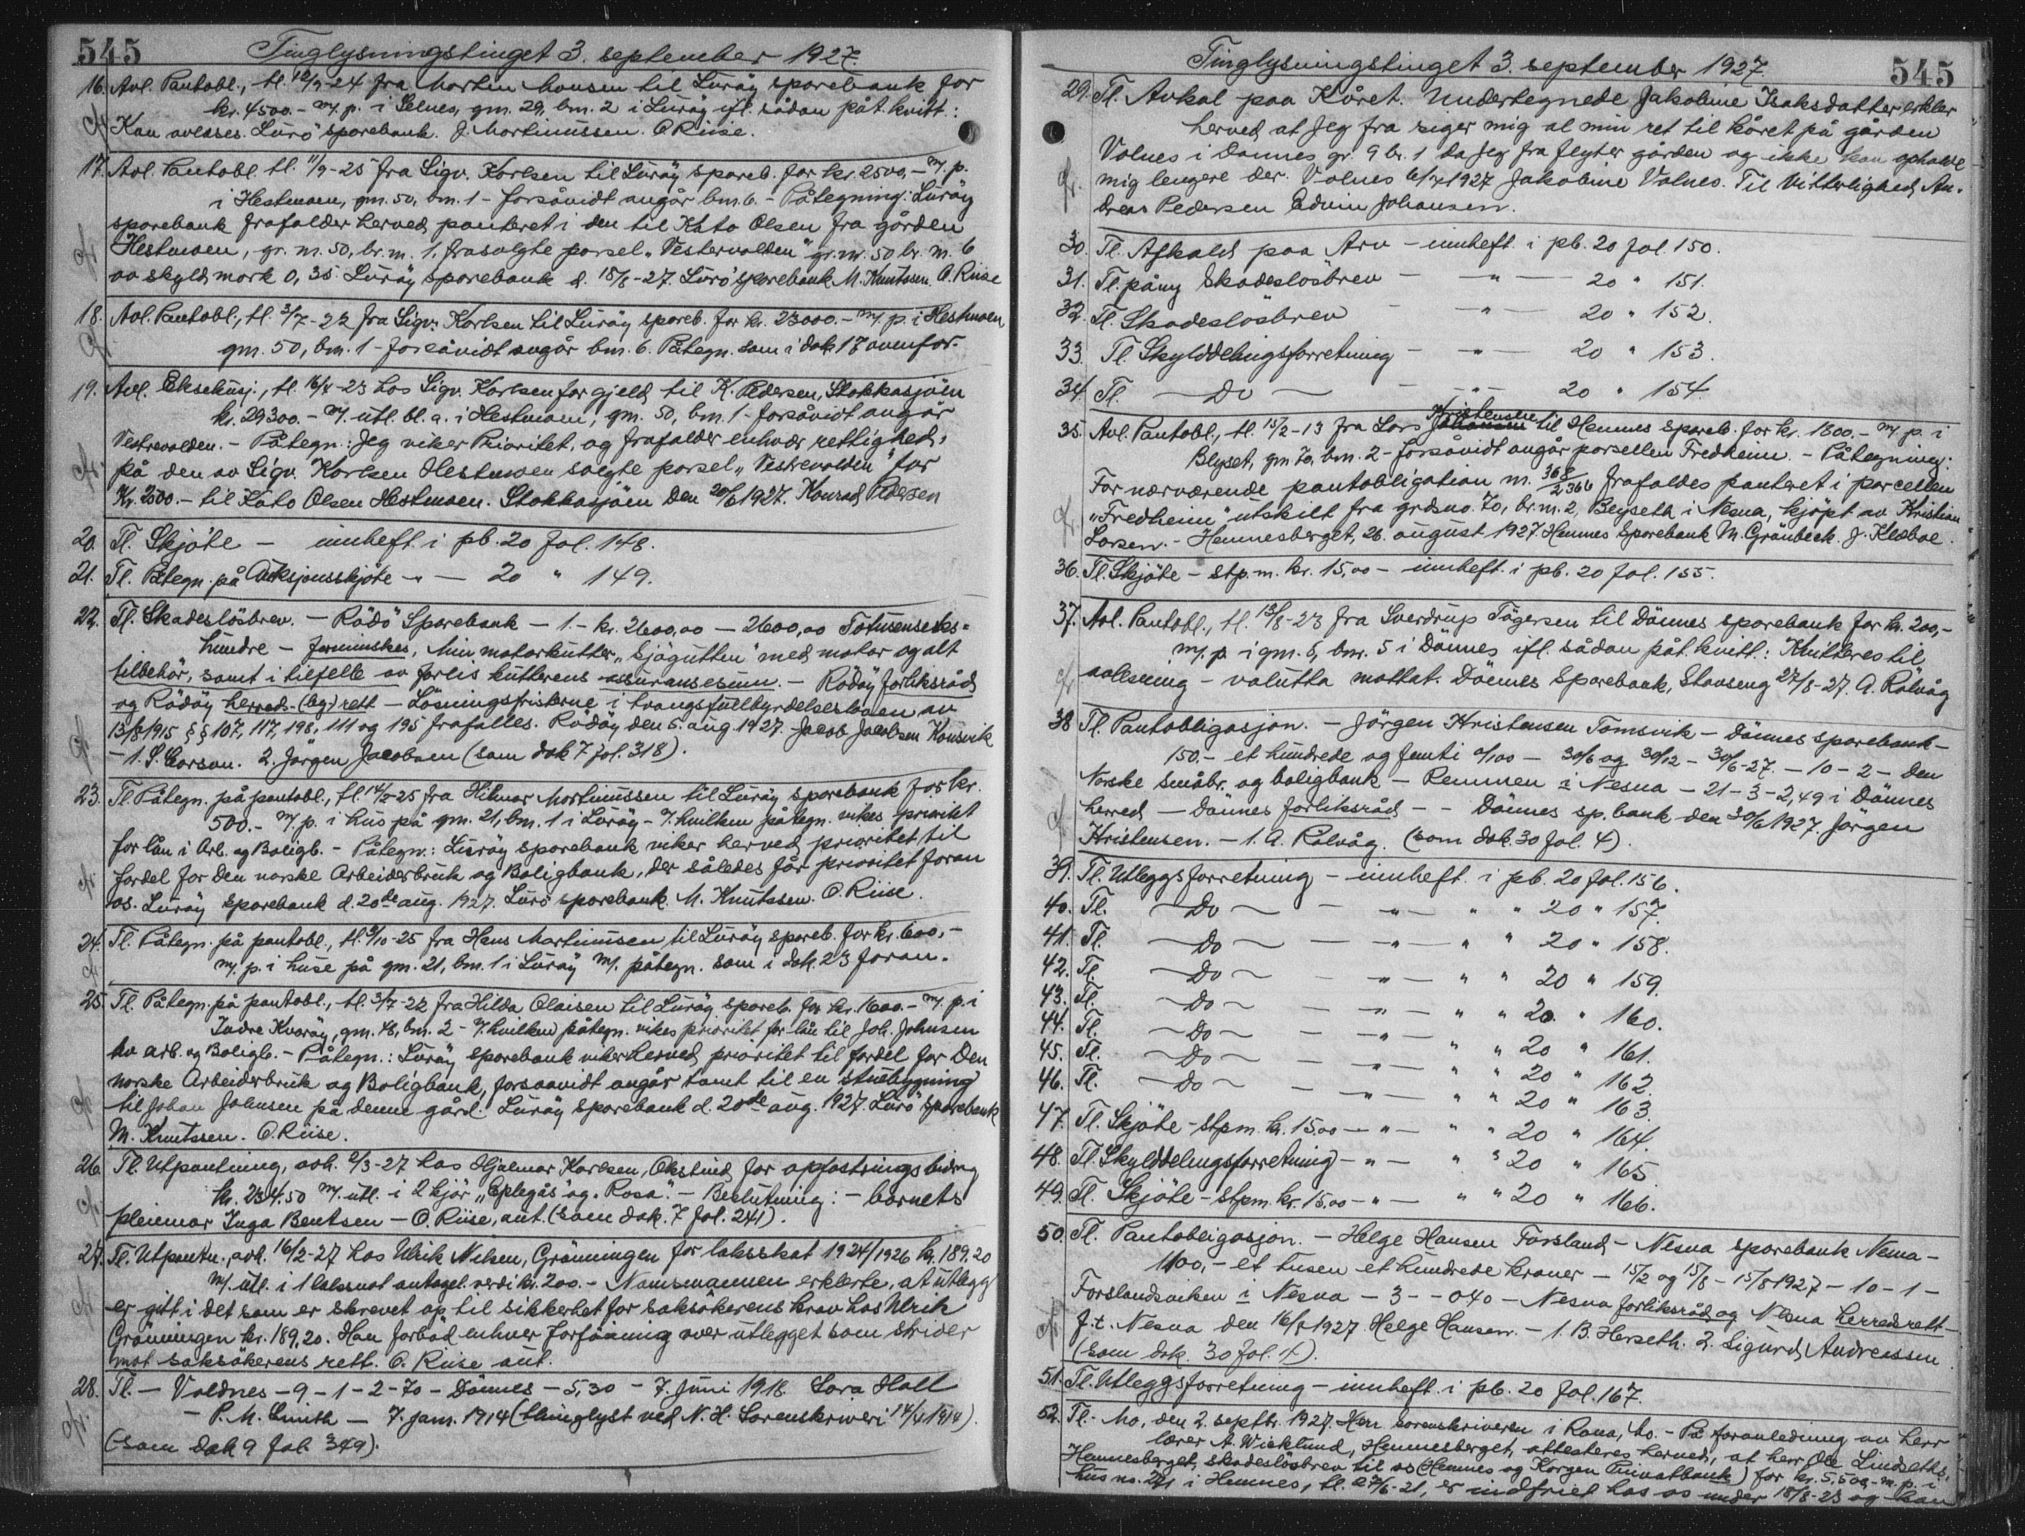 545
Tinglysningstinget 3. september 1927.
16. Avl. Pantobl., tl. 12/9-24 fra Morten Monsen til Luröy sparebank for
kr. 4500.- m/ p. i Selnes, gm. 29, bm. 2 i Luröy ifl. sådan påt. kvitt.:
Kan avlæses. Lurö sparebank. J. Martinussen. O Riise.
17. Avl. Pantobl. tl. 11/9-25 fra Sigv. Karlsen til Luröy spareb. for kr. 2500,- m/ p.
i Hestmoen, gm. 50, bm. 1 - forsåvidt angår bm. 6. - Påtegning: Luröy
sparebank frafalder herved panteret i den til Kato Olsen fra gården
Hestmoen, gr. nr. 50, br. nr. 1, frasolgte parsel „Vestervolden" gr. nr. 50 br. nr. 6
av skyld mark 0,35 Luröy sparebank d. 18/8-27. Lurö sparebank M. Knutssen. O. Riise
18. Avl. Pantobl., tl. 3/7-22 fra Sigv. Karlsen til Luröy spareb. for kr. 23000.- m/ p. i Hestmoen
gm. 50, bm. 1 - forsåvidt angår bm. 6. Påtegn. som i dok 17 ovenfor.
19. Avl. Eksekusj., tl. 16/4-23 hos Sigv. Karlsen for gjeld til K. Pedersen, Stokkasjöen
kr. 29300.- m/ utl. bl. a. i Hestmoen, gm. 50, bm. 1 - forsåvidt angår
Vestrevolden. - Påtegn.: Jeg viker Prioritet, og frafalder enhver rettighed,
på den av Sigv. Karlsen Hestmoen solgte parsel „Vestrevolden" for
Kr. 2000.- til Kato Olsen Hestmoen. Stokkasjöen den 20/6 1927. Konrad Pedersen
20. Tl. Skjöte - innheft. i pb. 20 fol. 148.
21. Tl. Påtegn. på Auksjonsskjöte - " - 20 " 149.
22. Tl. Skadeslösbrev. - Rödö Sparebank - 1.- kr. 2600,00 - 2600,00 Totusenseks=
hundre - forminskes, Min motorkutter „Sjögutten" med motor og alt
tilbehör, samt i tilfelle av forlis kutterens assuransesum. - Rödöy forliksråd
og Rödöy herreds- (by) rett - Lösningsfristerne i tvangsfullbyrdelsesloven av
13/8 1915 § § 107, 117, 198, 111 og 195 frafalles. Rödöy den 5. aug. 1927. Jacob Jacobsen Konsvik
- 1. S. Corson. 2. Jörgen Jacobsen (som dok 7 fol. 318).
23. Tl Påtegn. på pantobl., tl. 14/2-25 fra Hilmar Martinussen til Luröy sparebank for kr.
500.- m/ p. i hus på gm. 21, bm. 1 i Luröy - I hvilken påtegn. vikes prioritet
for lån i Arb. og Boligb. - Påtegn.: Luröy sparebank viker herved prioritet til
fordel for Den norske Arbeiderbruk og Boligbank, der således får prioritet foran
os. Luröy sparebank d. 20de aug. 1927. Lurö sparebank. M. Knutssen. O Riise.
24. Tl. Påtegn. på pantobl., tl. 9/10-25 fra Hans Martinusen til Luröy spareb. for kr. 600,-
m/ p. i huse på gm. 21, bm. 1 i Luröy m/. påtegn. som i dok. 23 foran.
25. Tl. Påtegn. på pantobl., tl. 3/7-22 fra Hilda Olaisen til Luröy spareb. for kr. 1600.- m/ p. i
Indre Kvaröy, gm. 48, bm. 2 - I hvilken påtegn. vikes prioritet for lån til Joh. Johnsen
av arb. og Boligb. - Påtegn.: Luröy sparebank viker herved prioritet til fordel for Den
norske Arbeiderbruk og Boligbank, forsaavidt angår tomt til en stuebygning
til Johan Johnsen på denne gård. Luröy sparebank d. 20de aug. 1927. Lurö sparebank
M. Knutssen. O. Riise.
26. Tl. Utpantning, avh. 2/3-27 hos Hjalmar Karlsen, Okstind, for opfostringsbidrag
kr. 234.50 m/. utl. i 2 kjör „Eplegås" og „Rosa". - Beslutning: - barnets
pleiemor Inga Bentsen - O. Riise, aut. (som dok. 7 fol. 241).
27. Tl. Utpantn., avh. 16/2-27 hos Ulrik Nilsen, Gröningen for laksskat 1924/1926 kr. 189,20
m/. utl. i 1 laksenot antagel. verdi kr. 200.- Namsmannen erklærte, at utlegg
er gitt i det som er skrevet op til sikkerhet for saksökerens krav hos Ulrik
Gröningen kr. 189,20. Han forböd enhver forföining over utlegget som strider
mot saksökerens rett. O. Riise aut.
28. Tl. - Valdnes - 9 - 1 - 2 - 70 - Dönnes - 5,30 - 7. juni 1918. Lora Holl
- P. M. Smith - 7. jam. 1914 (thinglyst ved N. H. Sorenskriveri 14/4 1914).
(som dok 9 fol. 349).
545
Tinglysningstinget 3. september 1927.
29. Tl. Avkal paa Kåret. Undertegnede Jakobine Isaksdatter erkler
herved at Jeg fra siger mig al min ret til kåret på gården
Valnes i Dönnes gr. 9 br. 1 da Jeg fra flyter gården og ikke kan opholde
mig lengere der. Valnes 6/4 1927 Jakobine Valnes. Til Vitterlighed An-
dreas Pedersen Edvin Johansen.
30. Tl. Afkald paa Arv - innheft. i pb. 20 fol. 150.
31. Tl. påny Skadeslösbrev - " - 20 " 151.
32. Tl. Skadeslösbrev - " - 20 " 152.
33. Tl. Skylddelingsforretning - " - 20 " 153.
34. Tl. - Do - - " - 20 " 154.
35. Avl. Pantobl., tl. 15/2-13 fra Lars Kristensen til Hemnes spareb. for kr. 1800.- m/ p. i
Blyset, gm 70, bm. 2 - forsåvidt angår parsellen Fredheim. - Påtegning:
For nærværende pantobligation nr. 368/2366 frafaldes panteret i parcellen
„Fredheim" utskilt fra grdsno. 70, br. nr. 2, Blyseth i Nesna, kjöpt av Kristian
Larsen. - Hemnesberget, 26. august 1927. Hemnes Sparebank M. Grönbeck. J. Klæboe.
36. Tl. Skjöte - stp. m. kr. 15,00 - innheft. i pb. 20 fol. 155.
37. Avl. Pantobl., tl. 13/8-23 fra Sverdrup Tögersen til Dönnes sparebank for kr. 200,-
m/. p. i gm. 5, bnr. 5 i Dönnes ifl. sådan påt. kvitt.: Kvitteres til
avlesning - valutta mottat. Dönnes Sparebank, Stavseng 27/8-27. A. Rölvåg
38 Tl. Pantobligasjon. - Jörgen Kristensen Tomsvik - Dönnes sparebank -
150.- et hundrede og femti 0/100 - 30/6 og 30/12 - 30/6-27. - 10 - 2 - Den
Norske småbr. og boligbank - Remmen i Nesna - 21 - 3 - 2,49 i Dönnes
herred - Dönnes forliksråd - - Dönnes sp. bank den 30/6 1927. Jörgen
Kristensen. - 1. A. Rölvåg. (som dok. 30 fol. 4).
39. Tl. Utleggsforretning - innheft. i pb. 20 fol. 156.
40. Tl. - Do - - " - " " 20 " 157.
41. Tl. - Do - - " - " " 20 " 158.
42. Tl. - Do - - " - " " 20 " 159.
43. Tl. - Do - - " - " " 20 " 160.
44. Tl. - Do - - " - " " 20 " 161.
45. Tl. - Do - - " - " " 20 " 162.
46. Tl. - Do - - " - " " 20 " 163.
47. Tl. Skjöte - stpm. kr. 15.00 - " - " " 20 " 164.
48. Tl. Skylddelingsforretning - " - " " 20 " 165.
49. Tl. Skjöte - stpm. kr. 15.00 - " - " " 20 " 166.
50. Tl. Pantobligasjon. - Helge Hansen Forsland - Nesna sparebank Nesna -
1100,- et tusen et hundrede kroner - 15/2 og 15/8 - 15/8 1927 - 10 - 1 -
Forslandsviken i Nesna - 3 - - 040 - Nesna forliksråd og Nesna herredsrett -
f. t. Nesna den 16/8 1927 Helge Hansen. - 1. B. Herseth. 2. Sigurd Andreassen.
(som dok. 30 fol. 4).
51. Tl. Utleggsforretning - innheft. i pb. 20 fol. 167.
52. Tl. Mo, den 2. septbr. 1927. Herr sorenskriveren i Rana, Mo. - På foranledning av herr
lærer A. Wicklund, Hemnesberget, attesteres herved, at herr Ole Lindseths,
Hemnesberget, skadeslösbrev til os (Hemnes og Korgen Privatbank) for kr. 5,500,- m. p. i
hus no. 291 i Hemnes, tl. 27/6-21, er indfriet hos os under 18/8-23 og kan